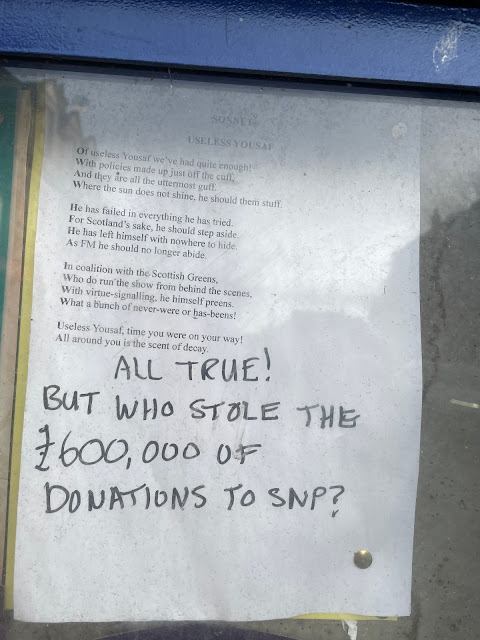 SONNET
USELESS YOUSAF
Of useless Yousaf we've had quite enough!
With policies made up just off the cuff,
And they are all the uttermost guff.
Where the sun does not shine, he should them stuff.
He has failed in everything he has tried.
For Scotland's sake, he should step aside.
He has left himself with nowhere to hide.
As FM he should no longer abide.
In coalition with the Scottish Greens,
Who do run the show from behind the scenes,
With virtue-signalling, he himself preens.
What a bunch of never-were or has-beens!
Useless Yousaf, time you were on your way!
All around you is the scent of decay.
ALL TRUE!
BUT WHO STOLE THE
£600,000 OF
DONATIONS TO SNP?